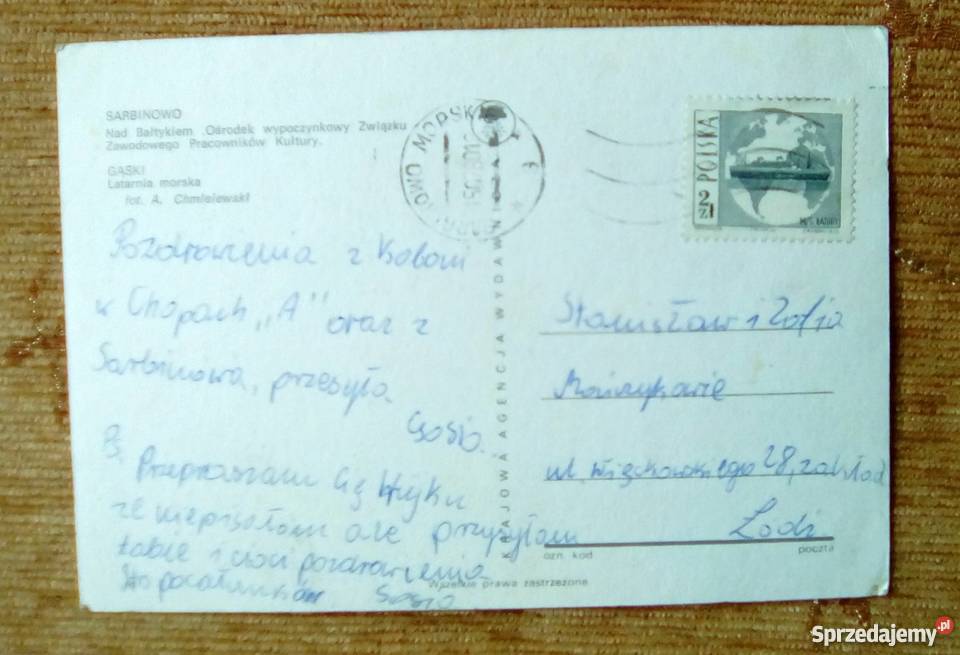 SARBINOWO
Nad Bałtykiem Ośrodek wypoczynkowy Związku
Zawodowego Pracowników Kultury.
GĄSKI
Latarnia morska
fot. A. Chmielewski
OWO MORSKI
POLSKA
2 zł
M/S BATORY
KRAJOWA AGENCJA WYDAWNICZA
Pozdrowienia z
w Chopach „A" oraz z
Sarbinowa, przesyła
Gosia.
Ps. Przepraszam Cię Wujku
że niepisałam ale przysyłam
tobie i cioci pozdrowienia
Sto pocałunków Gosia
Stanisław i Zofia
ul. Więckowskiego 28, zakład
Łodź
ozn. kod
poczta
Wszelkie prawa zastrzeżone
Sprzedajemy.pl